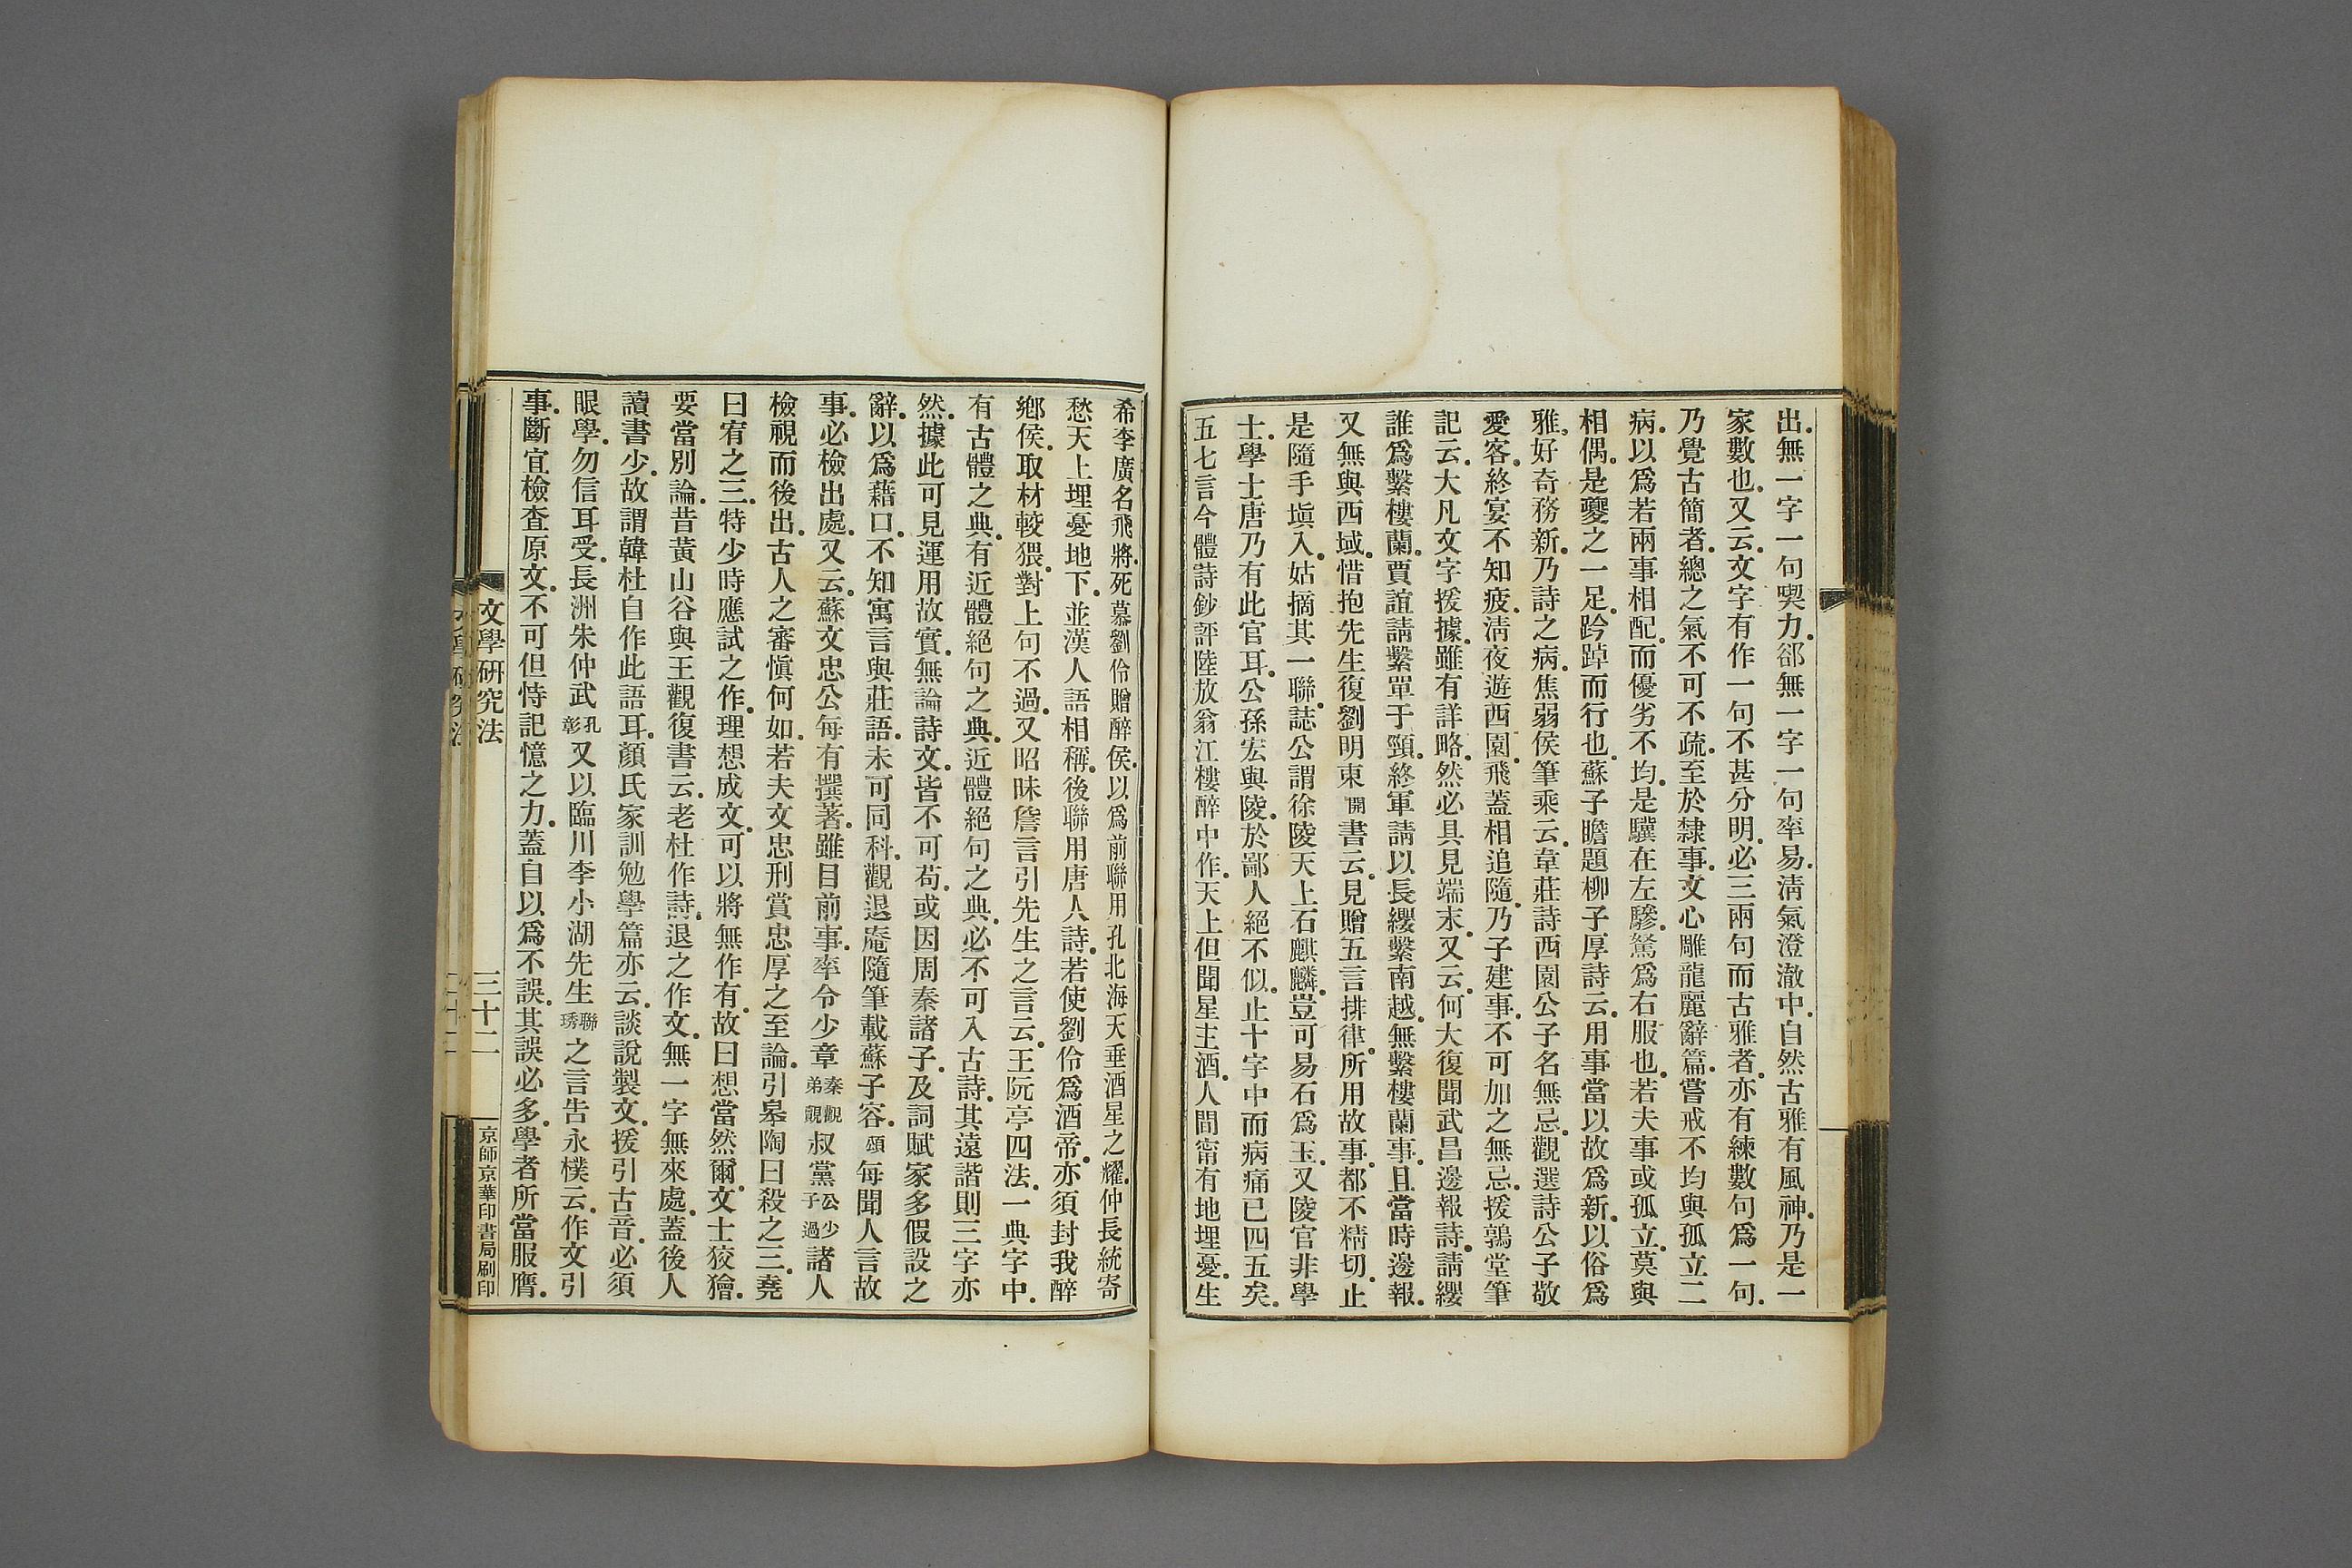 出無一字一句喫力卻無一字一句率易淸氣澄澈中自然古雅有風神乃是一
家數也又云文字有作一句不甚分明必三兩句而古雅者亦有練數句爲一句
乃覺古簡者總之氣不可不疏至於隸事文心雕龍麗辭篇嘗戒不均與孤立二
病以爲若兩事相配而優劣不均是驥在左驂駑爲右服也若夫事或孤立莫與
相偶是夔之一足趻踔而行也蘇子瞻題柳子厚詩云用事當以故爲新以俗爲
雅好奇務新乃詩之病焦弱侯筆乘云韋莊詩西園公子名無忌觀選詩公子敬
愛客終宴不知疲淸夜遊西園飛蓋相追隨乃子建事不可加之無忌援鶉堂筆
記云大凡文字援據雖有詳略然必具見端末又云何大復聞武昌邊報詩請纓
誰爲繫樓蘭賈誼請繫單于頸終軍請以長纓繫南越無繫樓蘭事且當時邊報
又無與西域惜抱先生復劉明東開書云見贈五言排律所用故事都不精切止
是隨手塡入姑摘其一聯誌公謂徐陵天上石麒麟豈可易石爲玉又陵官非學
士學士唐乃有此官耳公孫宏與陵於鄙人絕不似止十字中而病痛已四五矣
五七言今體詩鈔評陸放翁江樓醉中作天上但聞星主酒人間甯有地埋憂生
希李廣名飛將死慕劉伶贈醉侯以爲前聯用孔北海天垂酒星之耀仲長統寄
愁天上埋憂地下並漢人語相稱後聯用唐人詩若使劉伶爲酒帝亦須封我醉
鄕侯取材較猥對上句不過又昭昧詹言引先生之言云王阮亭四法一典字中
有古體之典有近體絕句之典近體絕句之典必不可入古詩其遠諧則三字亦
然據此可見運用故實無論詩文皆不可苟或因周秦諸子及詞賦家多假設之
辭以爲藉口不知寓言與莊語未可同科觀退庵隨筆載蘇子容頌每聞人言故
事必檢出處又云蘇文忠公每有撰著雖目前事率令少章秦觀弟覯叔黨公少子過諸人
檢視而後出古人之審愼何如若夫文忠刑賞忠厚之至論引皋陶曰殺之三堯
曰宥之三特少時應試之作理想成文可以將無作有故曰想當然爾文士狡獪
要當別論昔黃山谷與王觀復書云老杜作詩退之作文無一字無來處蓋後人
讀書少故謂韓杜自作此語耳顏氏家訓勉學篇亦云談說製文援引古昔必須
眼學勿信耳受長洲朱仲武孔彰又以臨川李小湖先生聯琇之言告永樸云作文引
事斷宜檢查原文不可但恃記憶之力蓋自以爲不誤其誤必多學者所當服膺
文學研究法 三十二 京師京華印書局刷印